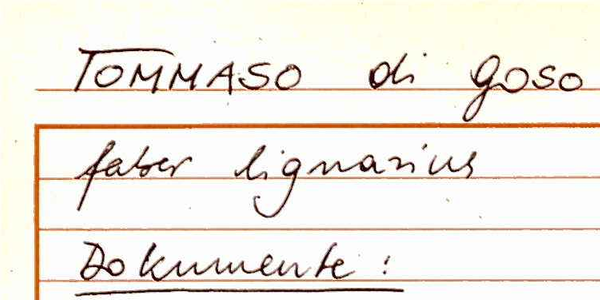 TOMMASO di GOSO
faber lignarius
Dokumente: